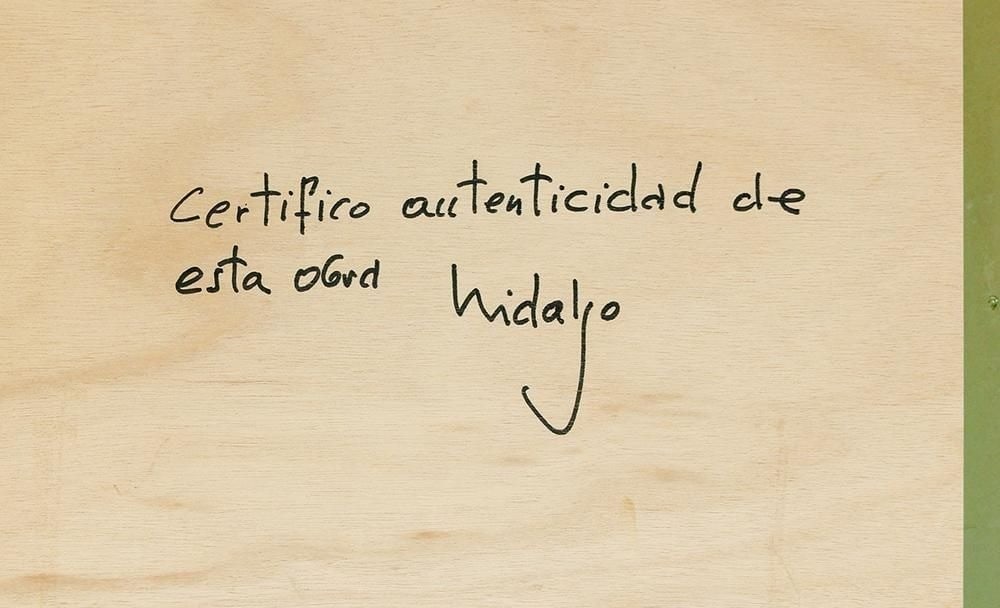 Certifico autenticidad de
esta obra
hidalgo